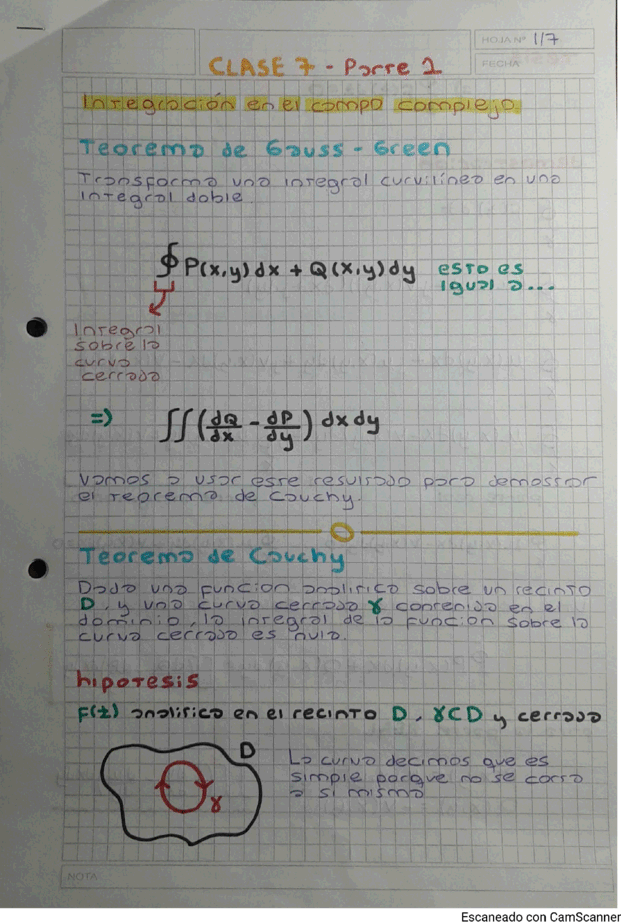 HOJA Nº 1/7
FECHA
CLASE 7 - Parte 1
Integración en el campo complejo
Teorema de Gauss - Green
Transforma una integral curvilínea en una
integral doble.
∮ P(x,y) dx + Q(x,y) dy esto es
igual a...
Integral
sobre la
curva
cerrada
=> ∬ (dQ/dx - dP/dy) dx dy
Vamos a usar este resultado para demostrar
el teorema de Cauchy.
Teorema de Cauchy
Dada una función analítica sobre un recinto
D, y una curva cerrada γ contenida en el
dominio, la integral de la función sobre la
curva cerrada es nula.
hipotesis
F(z) analítica en el recinto D, γ⊂D y cerrada
D
La curva decimos que es
simple porque no se corta
a si misma
γ
NOTA
Escaneado con CamScanner